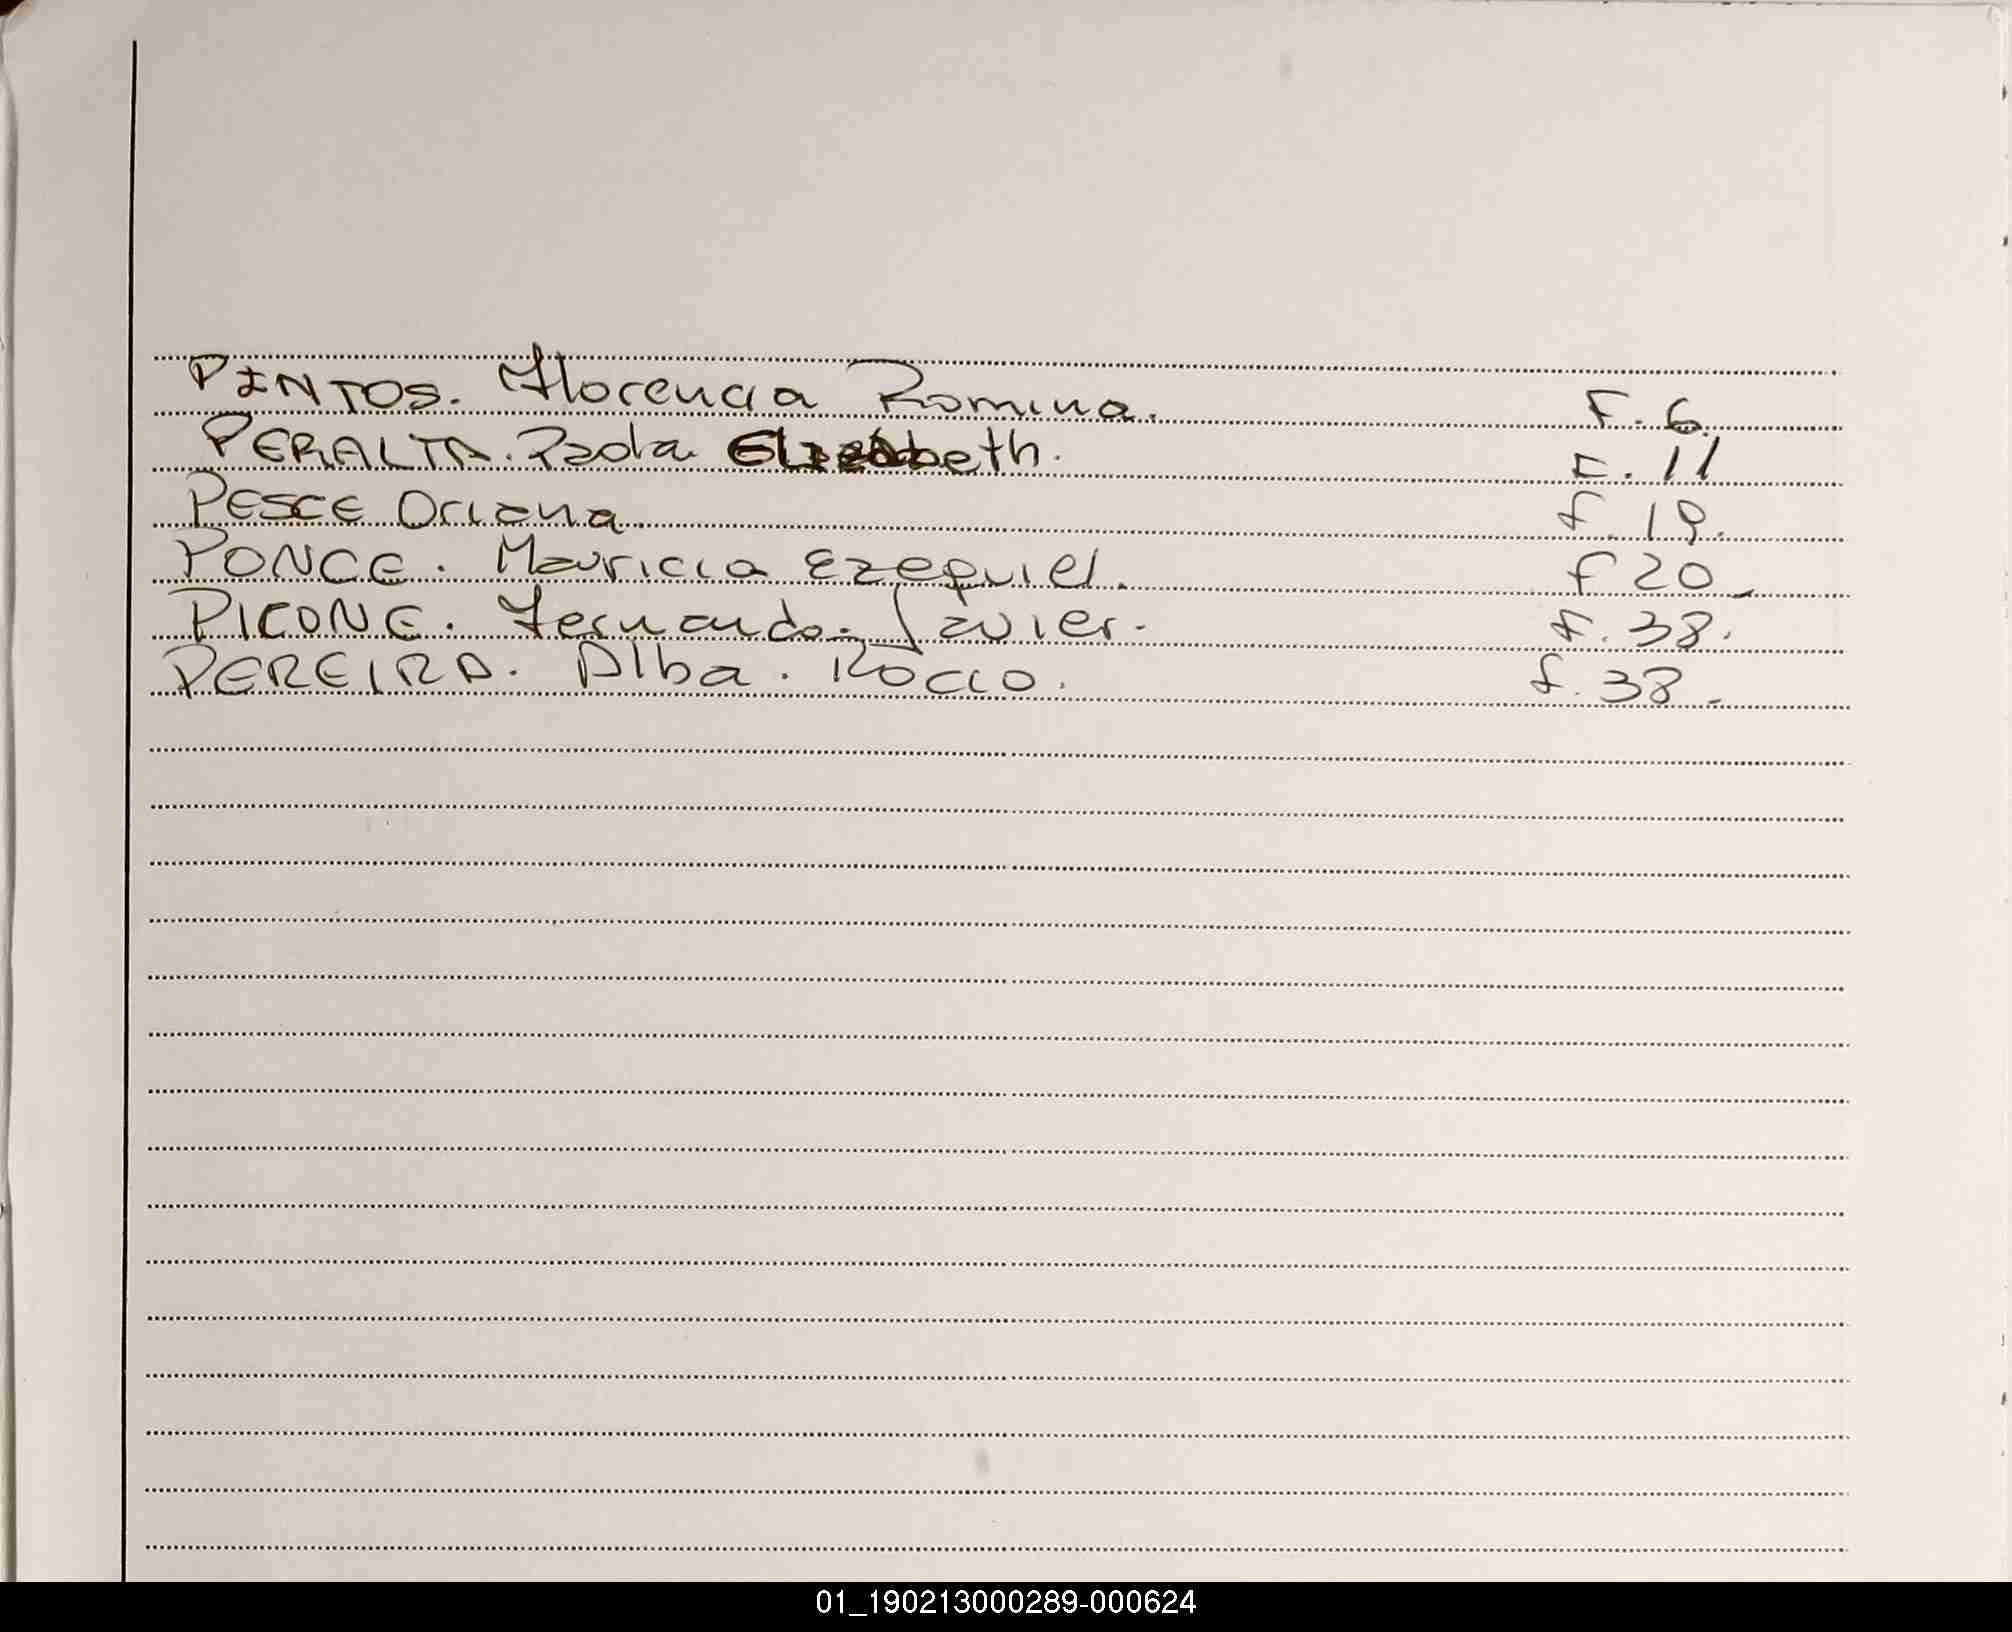 PINTOS. Florencia Romina. F. 6.
PERALTA. Paola Elizabeth. F. 11
PESCE Oriana. f. 19.
PONCE. Mauricia Ezequiel. f 20_
PICONE. Fernando. Javier. F. 38.
PEREIRA. Alba. Rocio. f. 38.
01_190213000289-000624